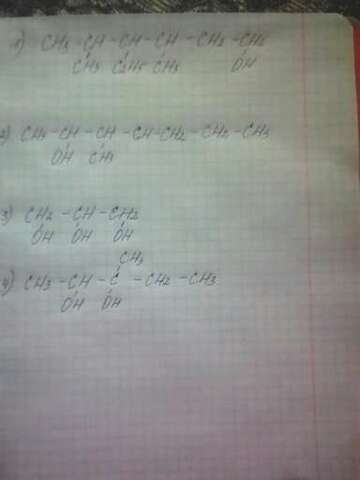 1) CH₃ - CH - CH - CH - CH₂ - CH₂
CH₃ C₂H₅ CH₃ OH
2) CH₃ - CH - CH - CH - CH₂ - CH₂ - CH₃
OH CH₃
3) CH₂ - CH - CH₂
OH OH OH
CH₃
4) CH₃ - CH - C - CH₂ - CH₃
OH OH